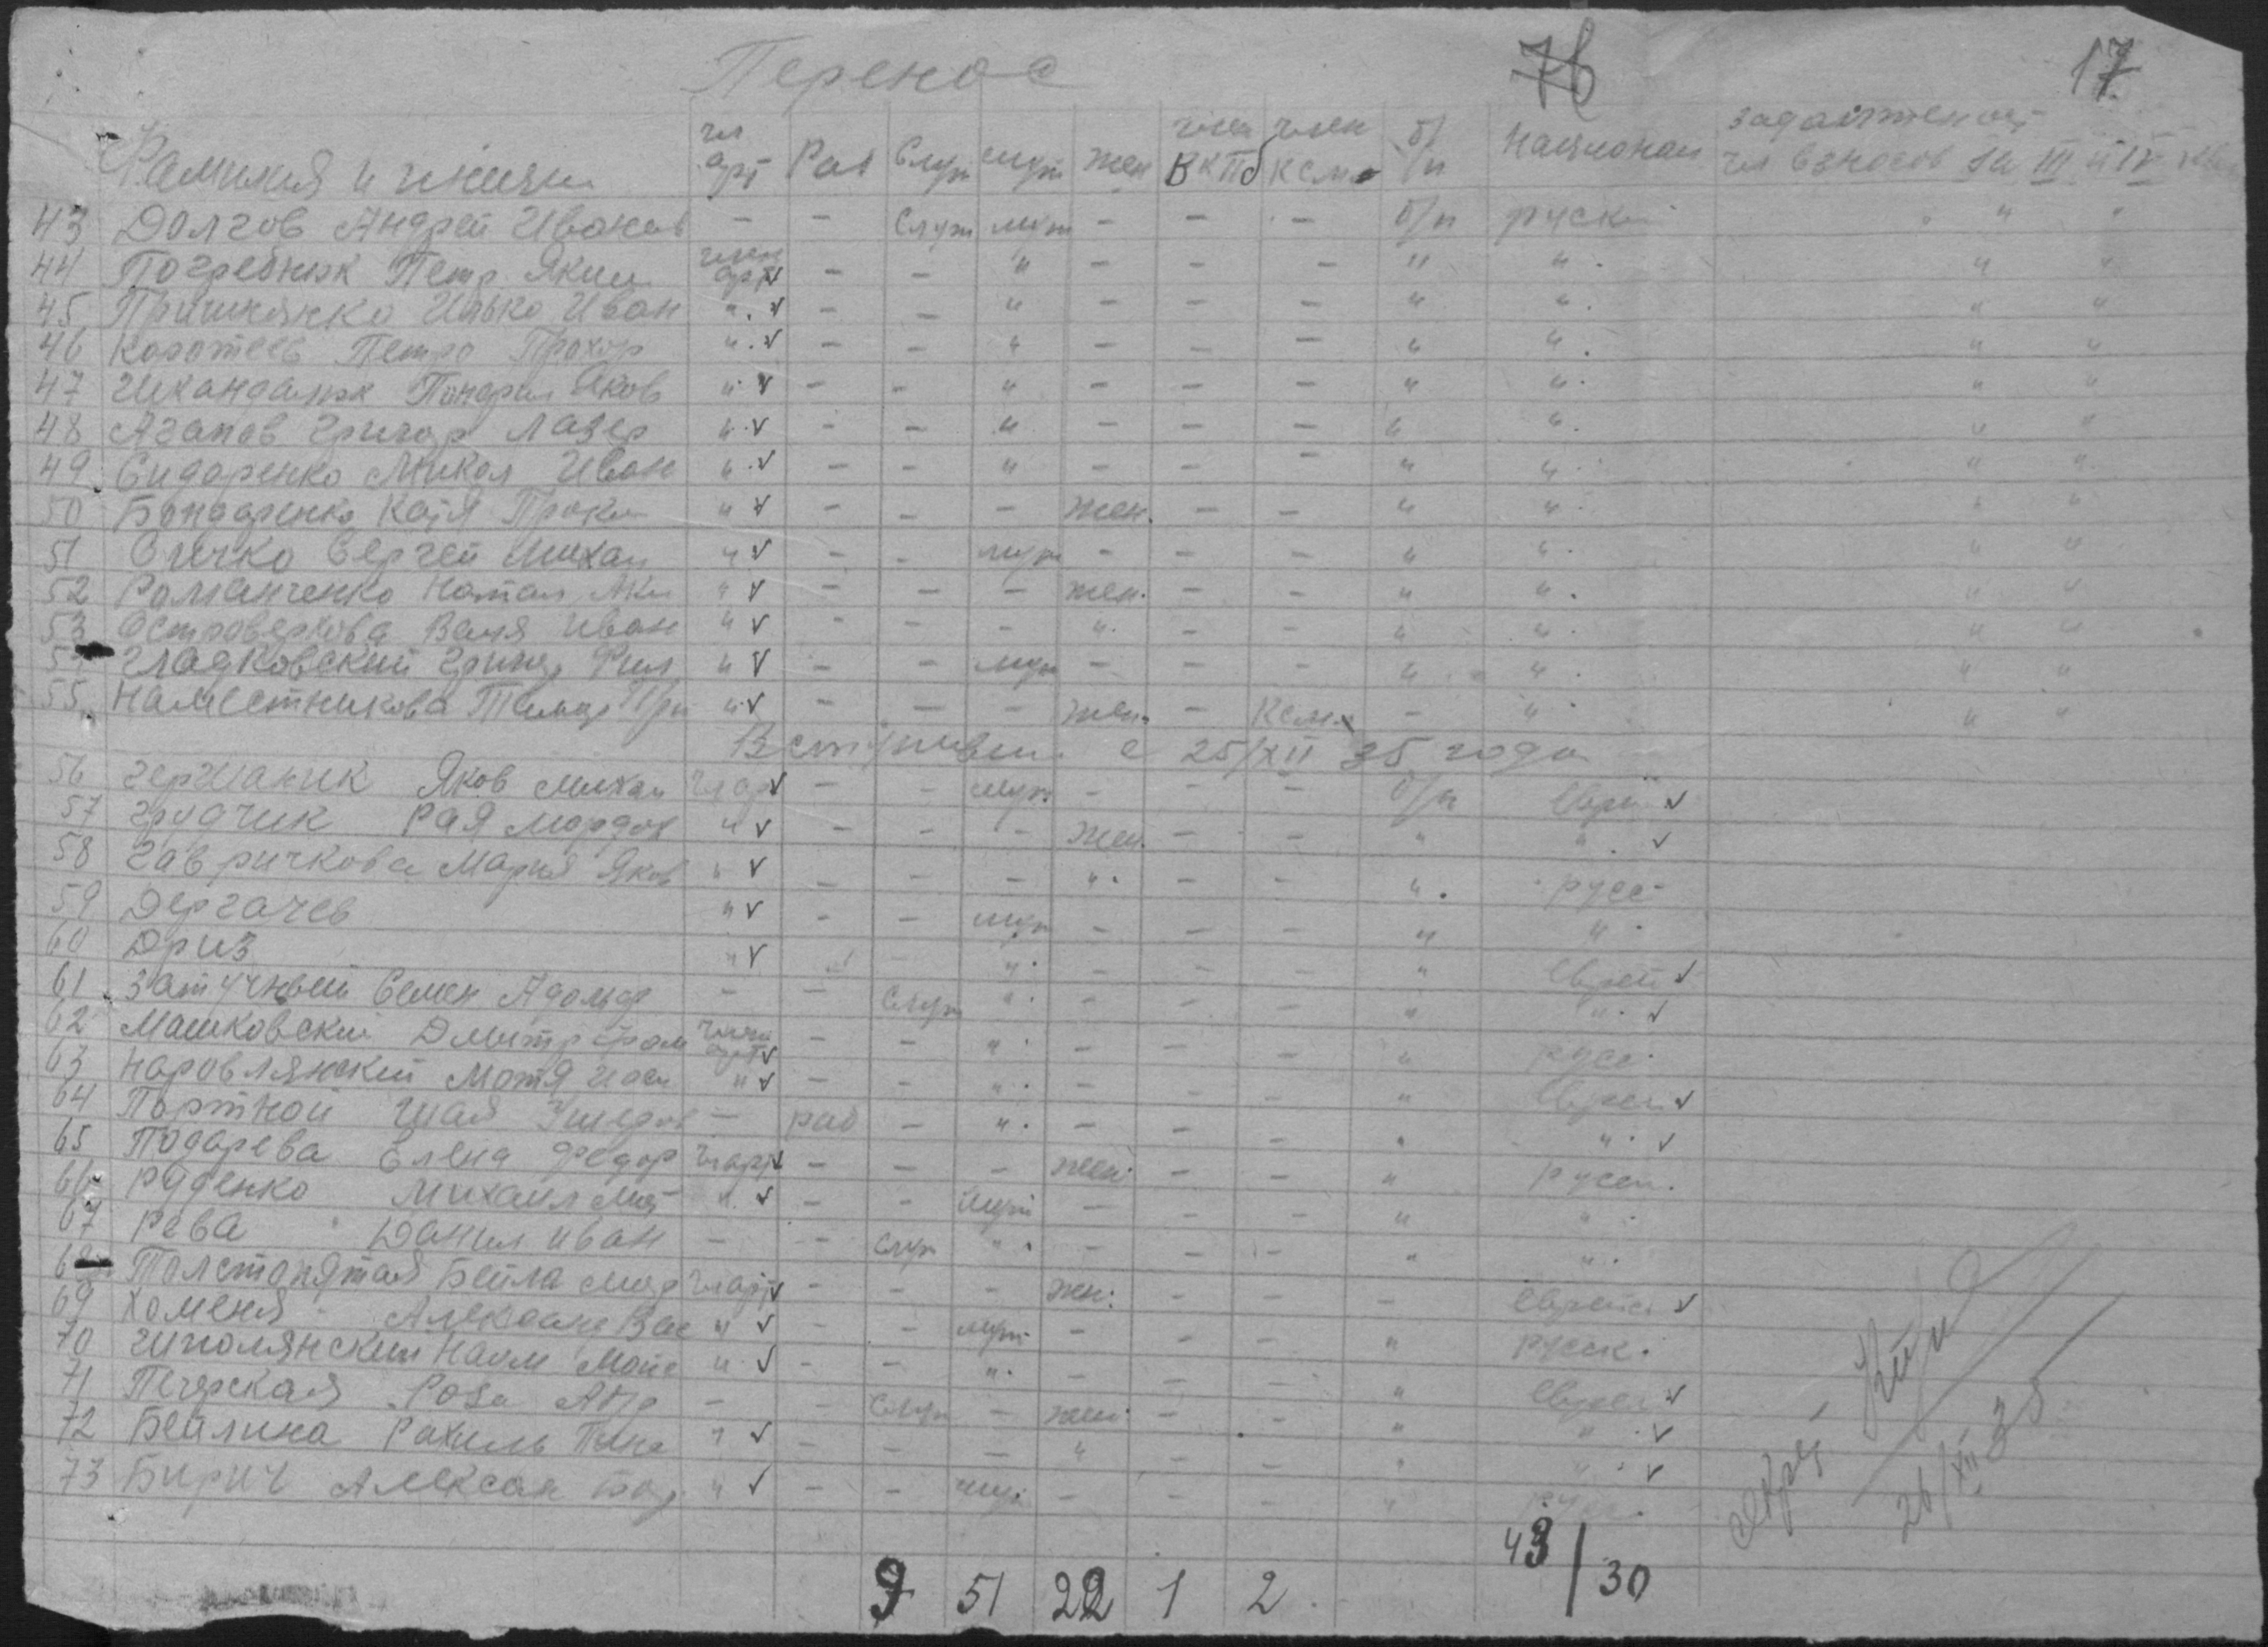 Перенос 76 17
Фамилия и имяи чл арт Раб Служ муж жен член ВКПб член КСМ б/п Национал задолженост чл взносов за III и IV кв
43 Долгов Андрей Иванов — — Служ муж — — — б/п руски " "
44 Погребнюк Петр Яким член арт v — — " — — — " " " "
45 Иван " v — — " — — — " " " "
46 Коротеев Петро Прохор " v — — " — — — " " " "
47 Яков " v — — " — — — " " " "
48 Агапов Григор Лазер " v — — " — — — " " " "
49 Сидоренко Микол Иван " v — — " — — — " " " "
50 Бондаренко Катя Проки " v — — — жен. — — " " " "
51 Сичко Сергей Михаи " v — — муж — — — " " " "
52 Романченко Натал Аки " v — — — жен. — — " " " "
53 Островерхова Валя Иван " v — — — " — — " " " "
54 Гладковский Григор Фил " v — — муж — — — " " " "
55 Наместникова Тамар Гри " v — — — жен. — Ксм. — " " "
Вступивши с 25/XII 35 года
56 Германик Яков Михаи чл арт v — — муж — — — б/п Еврей v
57 Грудчик Рая Мордох " v — — — жен. — — " " v
58 Гавричкова Мария Яков " v — — — " — — " русс
59 Дергачев " v — — муж — — — " "
60 Дриз " v — " — — — " Еврей v
61 Затучный Семен Адольф — — Служ " — — — " " v
62 Машковский Дмитр член арт v — — " — — — " русс
63 Наровлянский Мотя Иос " v — — " — — " Еврей v
64 Портной Шая — раб — " — — — " " v
65 Подарева Елена Федор чл арт v — — — жен. — — " русск.
66 Руденко Михаил Мат " v — — муж — — — " "
67 Рева Данил Иван — — служ " — — — " "
68 Толстопятая Бейла Мар чл арт v — — — жен. — — — Еврейк v
69 Хоменя Александ Вас " v — — муж — — — " русск.
70 Наум Мои " v — — " — — — " Еврей v
71 Печерская Роза Абр — — Служ — жен. — — " " v
72 Бейлина Рахиль Пине " v — — — " — — " " v
73 Бирич Алексан " v — — муж — — — " русс.
26/XII 35
9 51 22 1 2 43/30